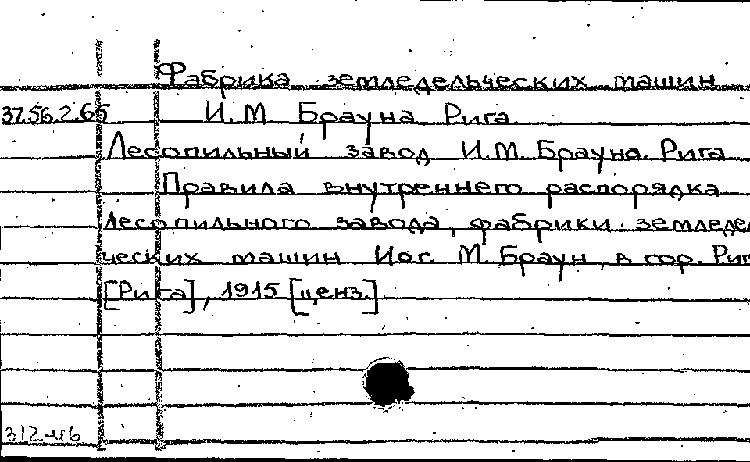 Фабрика земледельческих машин
37.56.2.65 И. М. Брауна. Рига.
Лесопильный завод И.М. Брауна. Рига
Правила внутреннего распорядка
лесопильного завода, фабрики земледе
ческих машин Иос. М. Браун, в гор. Риг
[Рига], 1915 [ценз.]